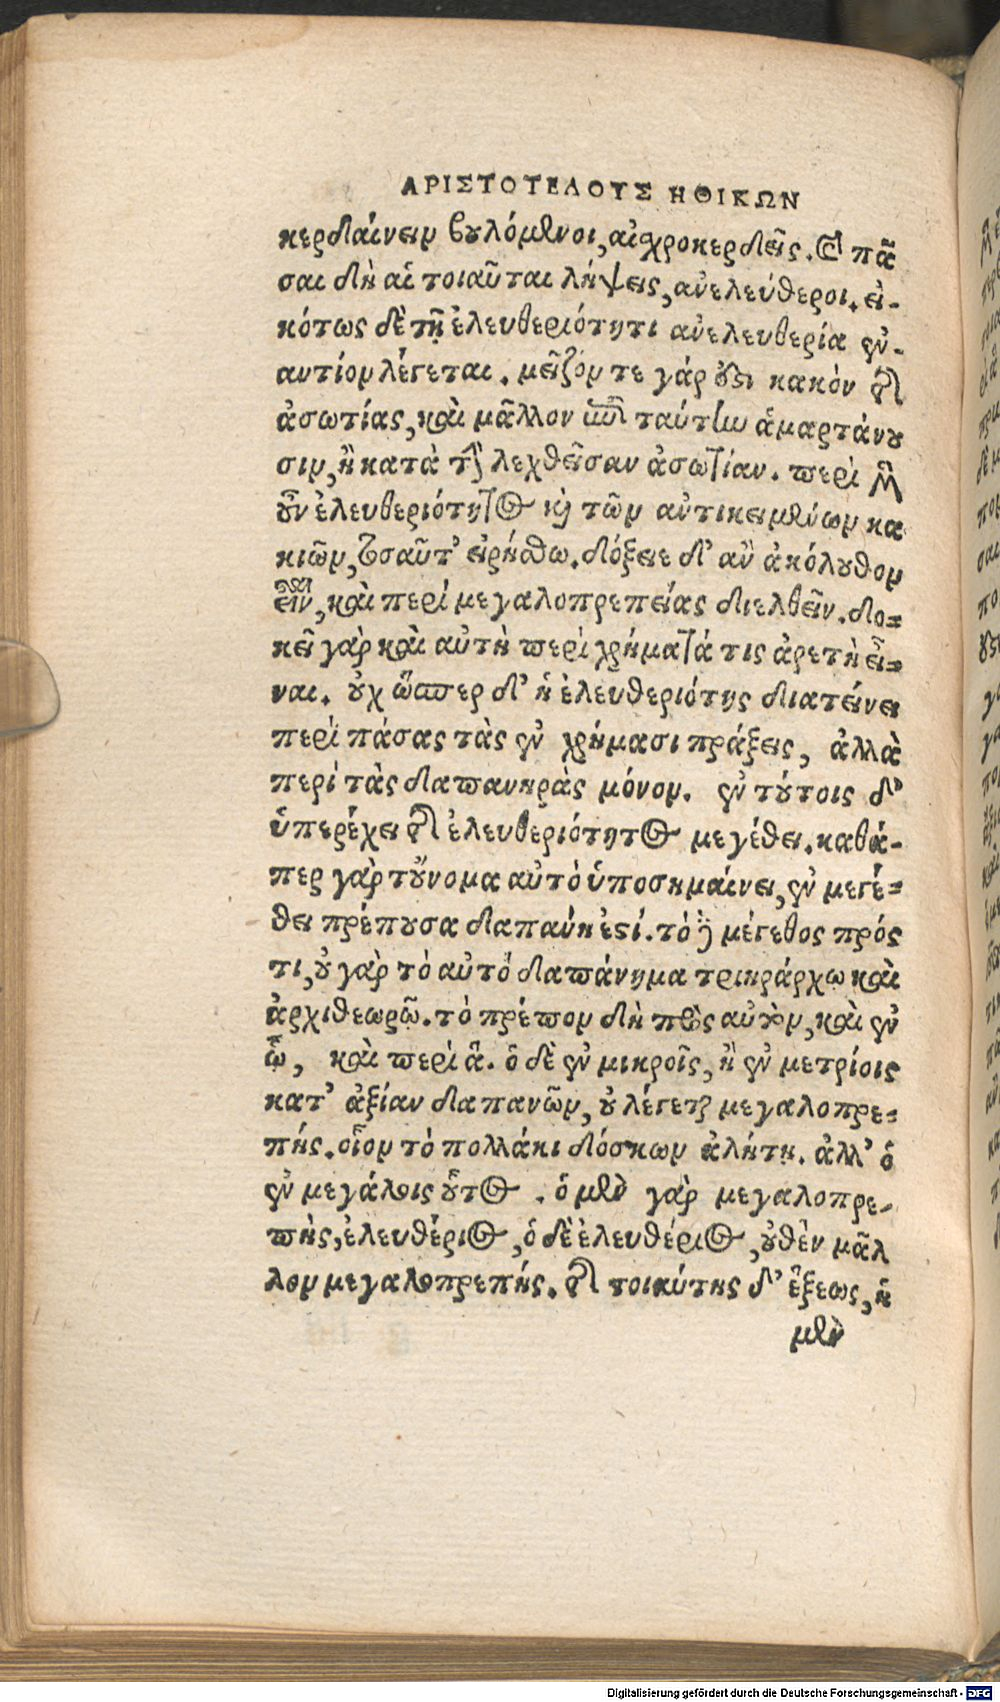 ΑΡΙΣΤΟΤΕΛΟΥΣ ΗΘΙΚΩΝ
κερδαίνειν βουλόμενοι, αἰσχροκερδεῖς. καὶ πᾶ
σαι δὴ αἱ τοιαῦται λήψεις, ἀνελεύθεροι. εἰ-
κότως δὲ τῇ ἐλευθεριότητι ἀνελευθερία ἐν-
αντίον λέγεται. μεῖζόν τε γάρ ὅστι κακὸν τῆς
ἀσωτίας, καὶ μᾶλλον ἐπὶ ταύτην ἁμαρτάνου
σιν, ἢ κατὰ τὴν λεχθεῖσαν ἀσωτίαν. περὶ μὲν
οὖν ἐλευθεριότητος καὶ τῶν ἀντικειμένων κα
κιῶν, τοσαῦτ' εἰρήσθω. δόξειε δ' ἂν ἀκόλουθον
εἶναι, καὶ περὶ μεγαλοπρεπείας διελθεῖν. δο-
κεῖ γὰρ καὶ αὐτὴ περὶ χρήματά τις ἀρετὴ εἶ-
ναι. οὐχ ὥσπερ δ' ἡ ἐλευθεριότης διατείνει
περὶ πάσας τὰς ἐν χρήμασι πράξεις, ἀλλὰ
περὶ τὰς δαπανηρὰς μόνον. ἐν τούτοις δ'
ὑπερέχει τῆς ἐλευθεριότητος μεγέθει. καθά-
περ γὰρ τοὔνομα αὐτὸ ὑποσημαίνει, ἐν μεγέ-
θει πρέπουσα δαπάνη ἐστί. τὸ δὲ μέγεθος πρός
τι, οὐ γὰρ τὸ αὐτὸ δαπάνημα τριηράρχω καὶ
ἀρχιθεωρῷ. τὸ πρέπον δὴ πρὸς αὐτὸν, καὶ ἐν
ᾧ, καὶ περὶ ἃ. ὁ δὲ ἐν μικροῖς, ἢ ἐν μετρίοις
κατ' ἀξίαν δαπανῶν, οὐ λέγεται μεγαλοπρε-
πής. οἷον τὸ πολλάκι δόσκων ἀλήτῃ. ἀλλ' ὁ
ἐν μεγάλοις οὗτος. ὁ μὲν γὰρ μεγαλοπρε-
πὴς, ἐλευθέριος, ὁ δὲ ἐλευθέριος, οὐθὲν μᾶλ
λον μεγαλοπρεπής. τῆς τοιαύτης δ' ἕξεως, ἡ
μὲν
Digitalisierung gefördert durch die Deutsche Forschungsgemeinschaft - DFG